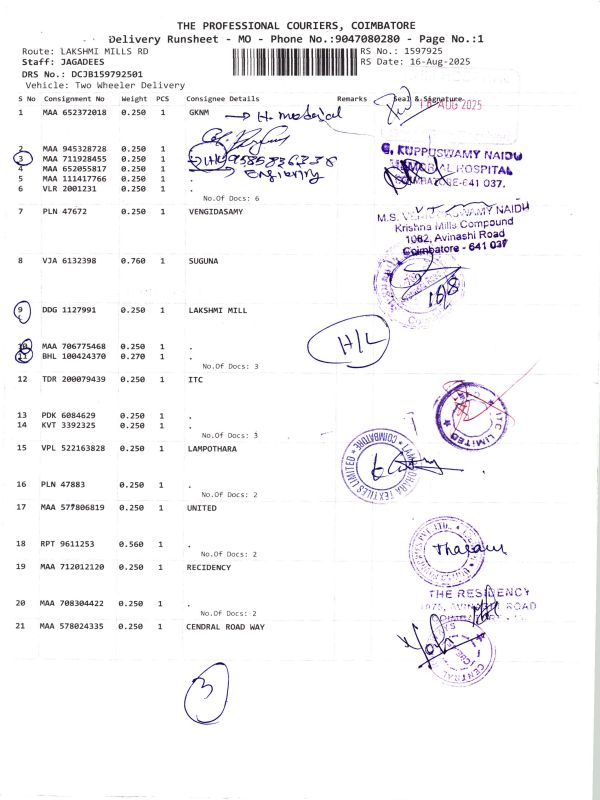 THE PROFESSIONAL COURIERS, COIMBATORE
Delivery Runsheet - MO - Phone No.:9047080280 - Page No.:1
Route: LAKSHMI MILLS RD
RS No.: 1597925
Staff: JAGADEES
RS Date: 16-Aug-2025
DRS No.: DCJB159792501
Vehicle: Two Wheeler Delivery
S No Consignment No Weight PCS Consignee Details Remarks Seal & Signature
AUG 2025
1 MAA 652372018 0.250 1 GKNM → H. material
2 MAA 945328728 0.250 1 .
3 MAA 711928455 0.250 1
4 MAA 652055817 0.250 1
5 MAA 111417766 0.250 1 .
6 VLR 2001231 0.250 1 .
No.Of Docs: 6
G. KUPPUSWAMY NAIDU
MEMORIAL HOSPITAL
COIMBATORE-641 037.
7 PLN 47672 0.250 1 VENGIDASAMY
Krishna Mills Compound
1082, Avinashi Road
Coimbatore - 641 037
8 VJA 6132398 0.760 1 SUGUNA
16/8
9 DDG 1127991 0.250 1 LAKSHMI MILL
H/L
10 MAA 706775468 0.250 1 .
11 BHL 100424370 0.270 1 .
No.Of Docs: 3
12 TDR 200079439 0.250 1 ITC
ITC LIMITED
13 PDK 6084629 0.250 1 .
14 KVT 3392325 0.250 1 .
No.Of Docs: 3
15 VPL 522163828 0.250 1 LAMPOTHARA
TEXTILES LIMITED * COIMBATORE
16 PLN 47883 0.250 1 .
No.Of Docs: 2
17 MAA 577806819 0.250 1 UNITED
18 RPT 9611253 0.560 1 .
No.Of Docs: 2
19 MAA 712012120 0.250 1 RECIDENCY
THE RESIDENCY
1076, AVINASHI ROAD
20 MAA 708304422 0.250 1 .
No.Of Docs: 2
21 MAA 578024335 0.250 1 CENDRAL ROAD WAY
CENTRAL
3